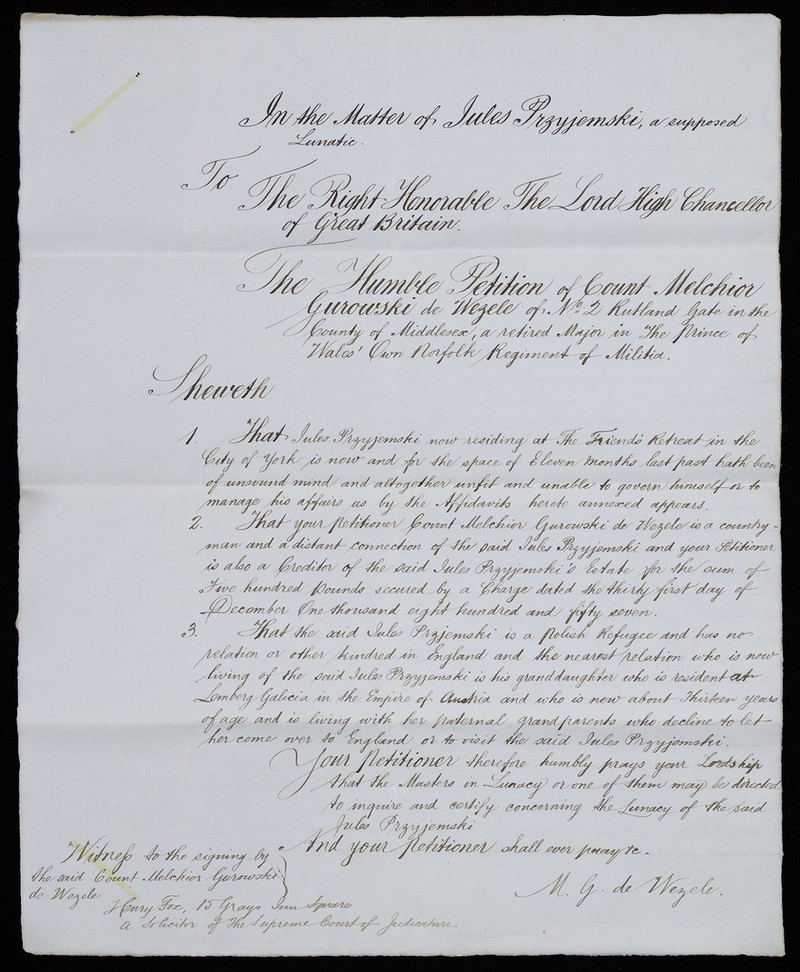 In the Matter of Jules Przyjemski, a supposed
Lunatic.
To
The Right Honorable The Lord High Chancellor
of Great Britain.
The Humble Petition of Count Melchior
Gurowski de Wezele of No. 2 Rutland Gate in the
County of Middlesex, a retired Major in The Prince of
Wales' Own Norfolk Regiment of Militia.
Sheweth
1. That Jules Przyjemski now residing at The Friends Retreat in the
City of York is now and for the space of Eleven Months last past hath been
of unsound mind and altogether unfit and unable to govern himself or to
manage his affairs as by the Affidavits hereto annexed appears.
2. That your Petitioner Count Melchior Gurowski de Wezele is a country-
man and a distant connection of the said Jules Przyjemski and your Petitioner
is also a Creditor of the said Jules Przyjemski's Estate for the sum of
Five hundred Pounds secured by a Charge dated the thirty first day of
December One thousand eight hundred and fifty seven.
3. That the said Jules Przjemski is a Polish Refugee and has no
relation or other kindred in England and the nearest relation who is now
living of the said Jules Przyjemski is his granddaughter who is resident at
Lemberg Galicia in the Empire of Austria and who is now about Thirteen years
of age and is living with her paternal grandparents who decline to let
her come over to England or to visit the said Jules Przyjemski.
Your Petitioner therefore humbly prays your Lordship
that the Masters in Lunacy or one of them may be directed
to inquire and certify concerning the Lunacy of the said
Jules Przyjemski
And your Petitioner shall ever pray &c.
Witness to the signing by
the said Count Melchior Gurowski
de Wezele
M. G. de Wezele.
Henry Fox, 15 Grays Inn Square
a Solicitor of The Supreme Court of Judicature.